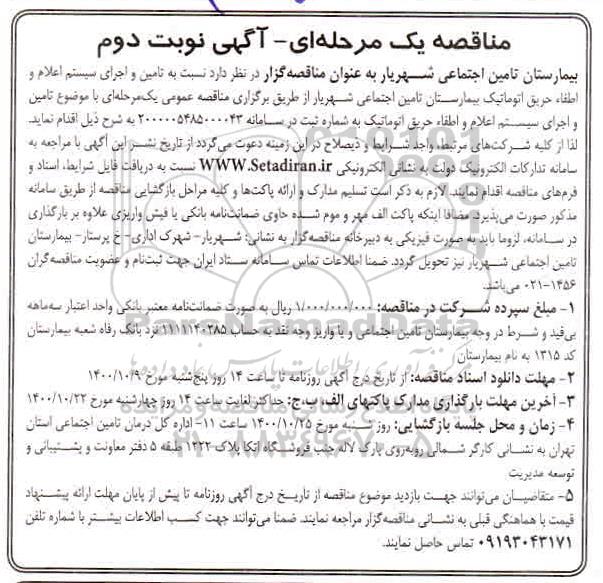 مناقصه یک مرحله‌ای- آگهی نوبت دوم
بیمارستان تامین اجتماعی شهریار به عنوان مناقصه‌گزار در نظر دارد نسبت به تامین و اجرای سیستم اعلام و
اطفاء حریق اتوماتیک بیمارستان تامین اجتماعی شهریار از طریق برگزاری مناقصه عمومی یک‌مرحله‌ای با موضوع تامین
و اجرای سیستم اعلام و اطفاء حریق اتوماتیک به شماره ثبت در سامانه ۲۰۰۰۰۰۵۴۸۵۰۰۰۰۴۳ به شرح ذیل اقدام نماید.
لذا از کلیه شرکت‌های مرتبط، واجد شرایط و ذیصلاح در این زمینه دعوت می‌گردد از تاریخ نشر این آگهی با مراجعه به
سامانه تدارکات الکترونیک دولت به نشانی الکترونیکی WWW.Setadiran.ir نسبت به دریافت فایل شرایط، اسناد و
فرم‌های مناقصه اقدام نمایند. لازم به ذکر است تسلیم مدارک و ارائه پاکت‌ها و کلیه مراحل بازگشایی مناقصه از طریق سامانه
مذکور صورت می‌پذیرد. مضافا اینکه پاکت الف مهر و موم شده حاوی ضمانت‌نامه بانکی یا فیش واریزی علاوه بر بارگذاری
در سامانه، لزوما باید به صورت فیزیکی به دبیرخانه مناقصه‌گزار به نشانی: شهریار- شهرک اداری- خ پرستار- بیمارستان
تامین اجتماعی شهریار نیز تحویل گردد. ضمنا اطلاعات تماس سامانه ستاد ایران جهت ثبت‌نام و عضویت مناقصه‌گران
۰۲۱-۱۴۵۶ می‌باشد.
۱- مبلغ سپرده شرکت در مناقصه: ۱/۰۰۰/۰۰۰/۰۰۰ ریال به صورت ضمانت‌نامه معتبر بانکی واجد اعتبار سه‌ماهه
بی‌قید و شرط در وجه بیمارستان تامین اجتماعی و یا واریز وجه نقد به حساب ۱۱۱۱۱۴۰۲۸۵ نزد بانک رفاه شعبه بیمارستان
کد ۱۳۱۵ به نام بیمارستان
۲- مهلت دانلود اسناد مناقصه: از تاریخ درج آگهی روزنامه تا ساعت ۱۴ روز پنج‌شنبه مورخ ۱۴۰۰/۱۰/۹
۳- آخرین مهلت بارگذاری مدارک پاکتهای الف، ب، ج: حداکثر لغایت ساعت ۱۴ روز چهارشنبه مورخ ۱۴۰۰/۱۰/۲۲
۴- زمان و محل جلسه بازگشایی: روز شنبه مورخ ۱۴۰۰/۱۰/۲۵ ساعت ۱۱- اداره کل درمان تامین اجتماعی استان
تهران به نشانی کارگر شمالی روبه‌روی پارک لاله جنب فروشگاه اتکا پلاک ۱۲۲۲ طبقه ۵ دفتر معاونت و پشتیبانی و
توسعه مدیریت
۵- متقاضیان می‌توانند جهت بازدید موضوع مناقصه از تاریخ درج آگهی روزنامه تا پیش از پایان مهلت ارائه پیشنهاد
قیمت با هماهنگی قبلی به نشانی مناقصه‌گزار مراجعه نمایند. ضمنا می‌توانند جهت کسب اطلاعات بیشتر با شماره تلفن
۰۹۱۹۳۰۴۳۱۷۱ تماس حاصل نمایند.